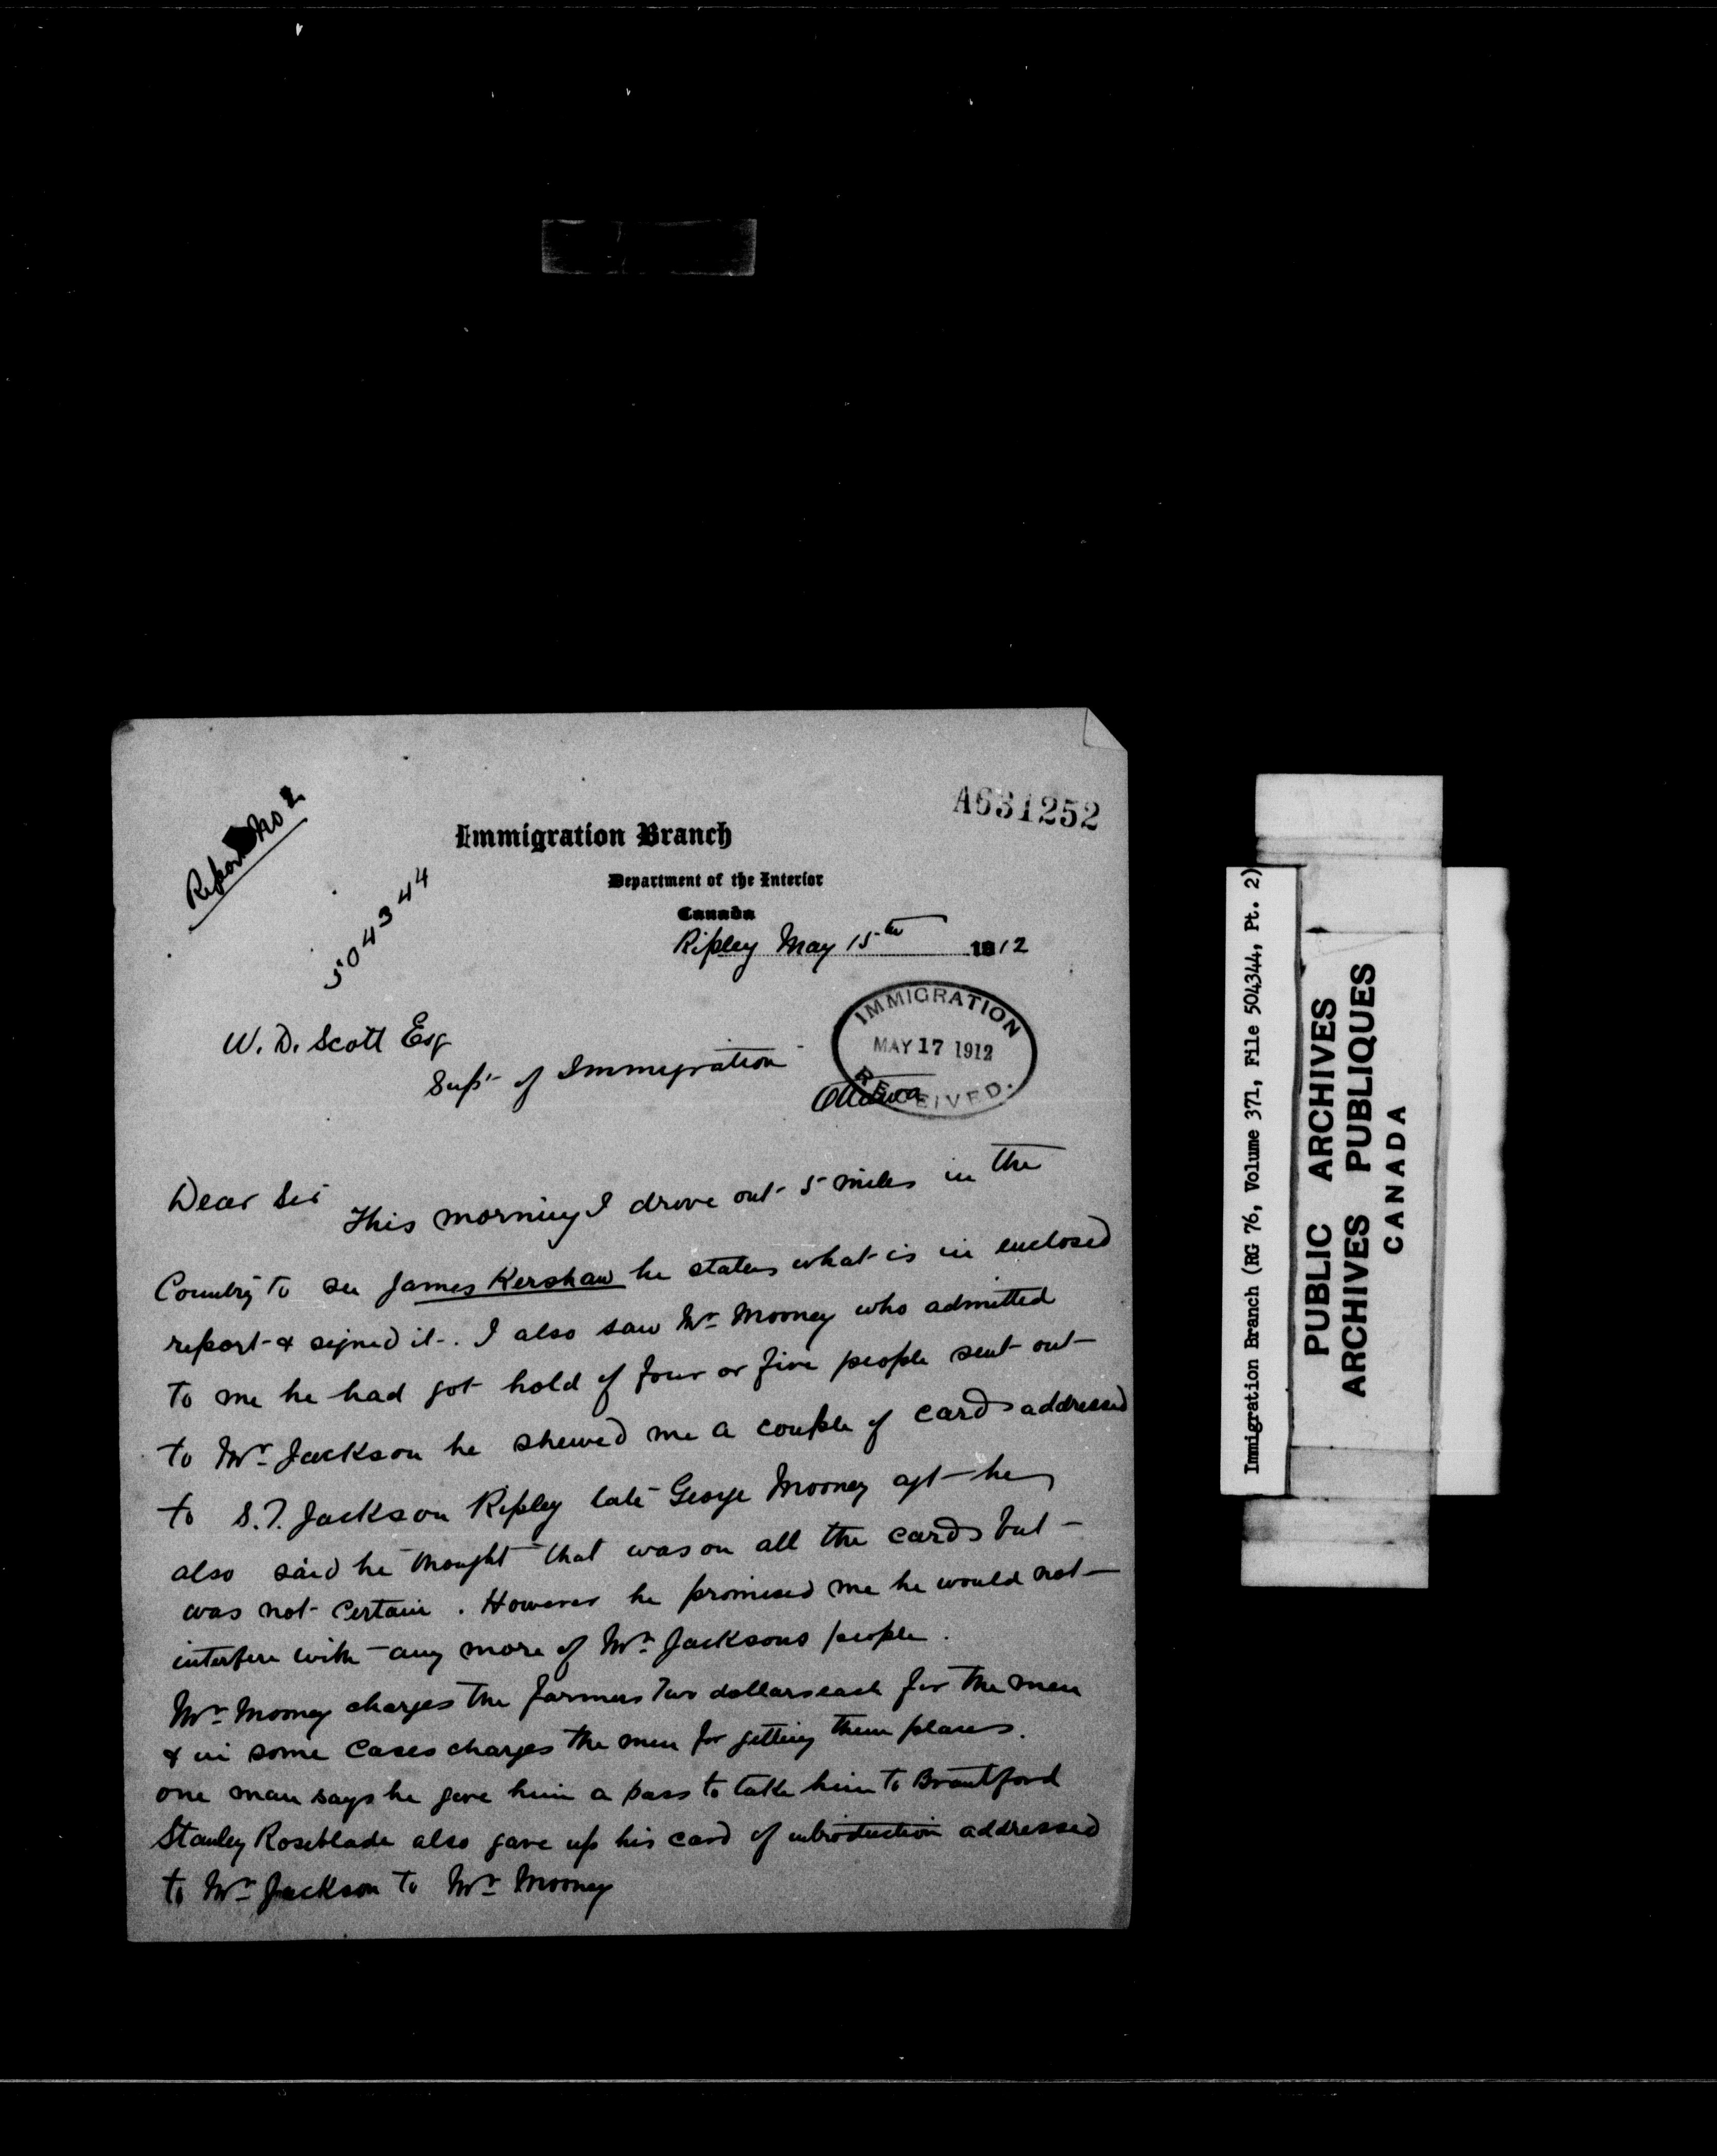 Report No 2
A631252
Immigration Branch
504344
Department of the Interior
Canada
Ripley May 15th 1912
IMMIGRATION
MAY 17 1912
RECEIVED.
W. D. Scott Esq
Supt of Immigration
Ottawa
Dear Sir
This morning I drove out 5 miles in the
Country to see James Kershaw he states what is in enclosed
report & signed it. I also saw Mr Mooney who admitted
to me he had got hold of four or five people sent out
to Mr Jackson he shewed me a couple of cards addressed
to S.T. Jackson Ripley late George Mooney agt he
also said he thought that was on all the cards but
was not certain. However he promised me he would not
interfere with any more of Mr Jacksons people.
Mr Mooney charges the farmers Two dollars each for the men
& in some cases charges the men for getting them places.
one man says he gave him a pass to take him to Brantford
Stanley Roseblade also gave up his card of introduction addressed
to Mr Jackson to Mr Mooney
Immigration Branch (RG 76, Volume 371, File 504344, Pt. 2)
PUBLIC ARCHIVES
ARCHIVES PUBLIQUES
CANADA